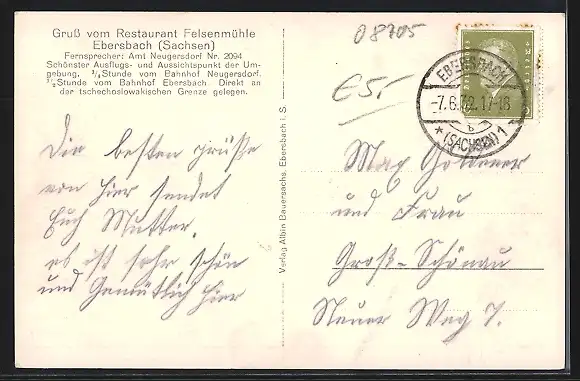 Gruß vom Restaurant Felsenmühle
Ebersbach (Sachsen)
Fernsprecher: Amt Neugersdorf Nr. 2094
Schönster Ausflugs- und Aussichtspunkt der Um-
gebung. Stunde vom Bahnhof Neugersdorf.
Stunde vom Bahnhof Ebersbach Direkt an
der tschechoslowakischen Grenze gelegen.
08705
€5,-
EBERSBACH
-7.6.32.17-18
b
* (SACHSEN) 1
Die besten Grüße
von hier sendet
Euch Mutter.
es ist sehr schön
und Gemütlich hier
Verlag Albin Bauersachs, Ebersbach i. S.
Max
und Frau
Groß-Schönau
Neuer Weg 7.